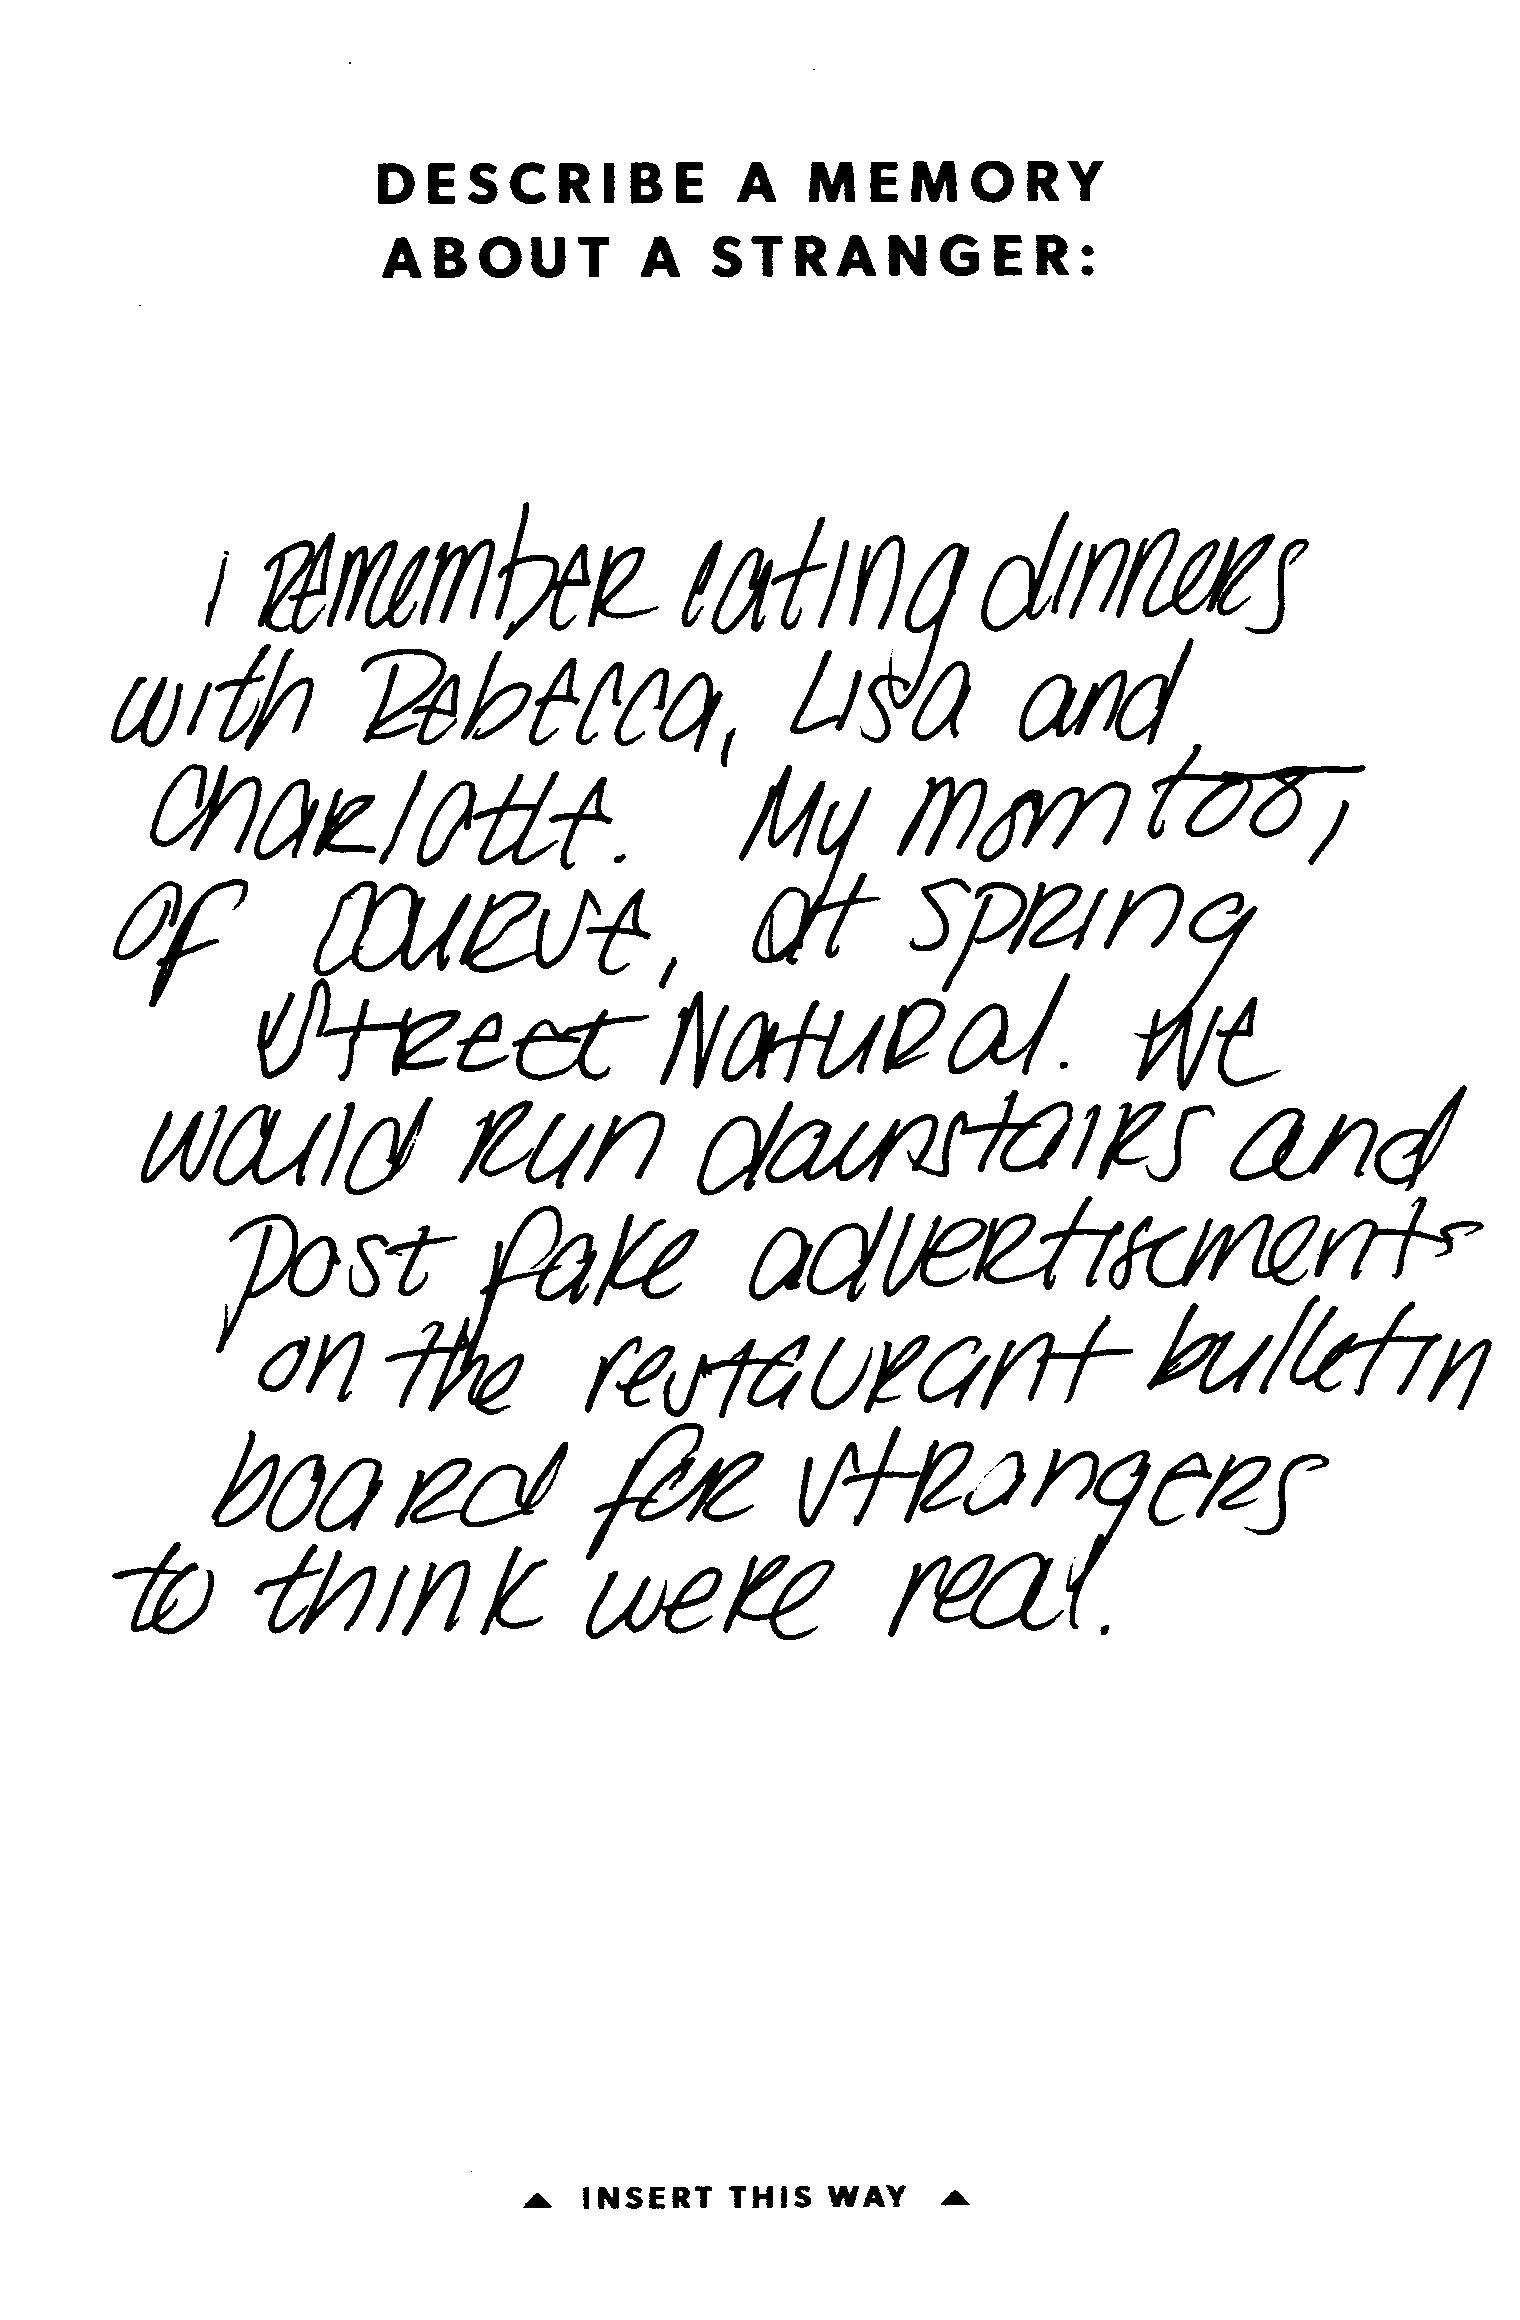 DESCRIBE A MEMORY
ABOUT A STRANGER:
I remember eating dinners
with Rebecca, Lisa and
Charlotte. My mom too,
of course, at Spring
Street Natural. We
would run downstairs and
post fake advertisements
on the restaurant bulletin
board for strangers
to think were real.
▲ INSERT THIS WAY ▲